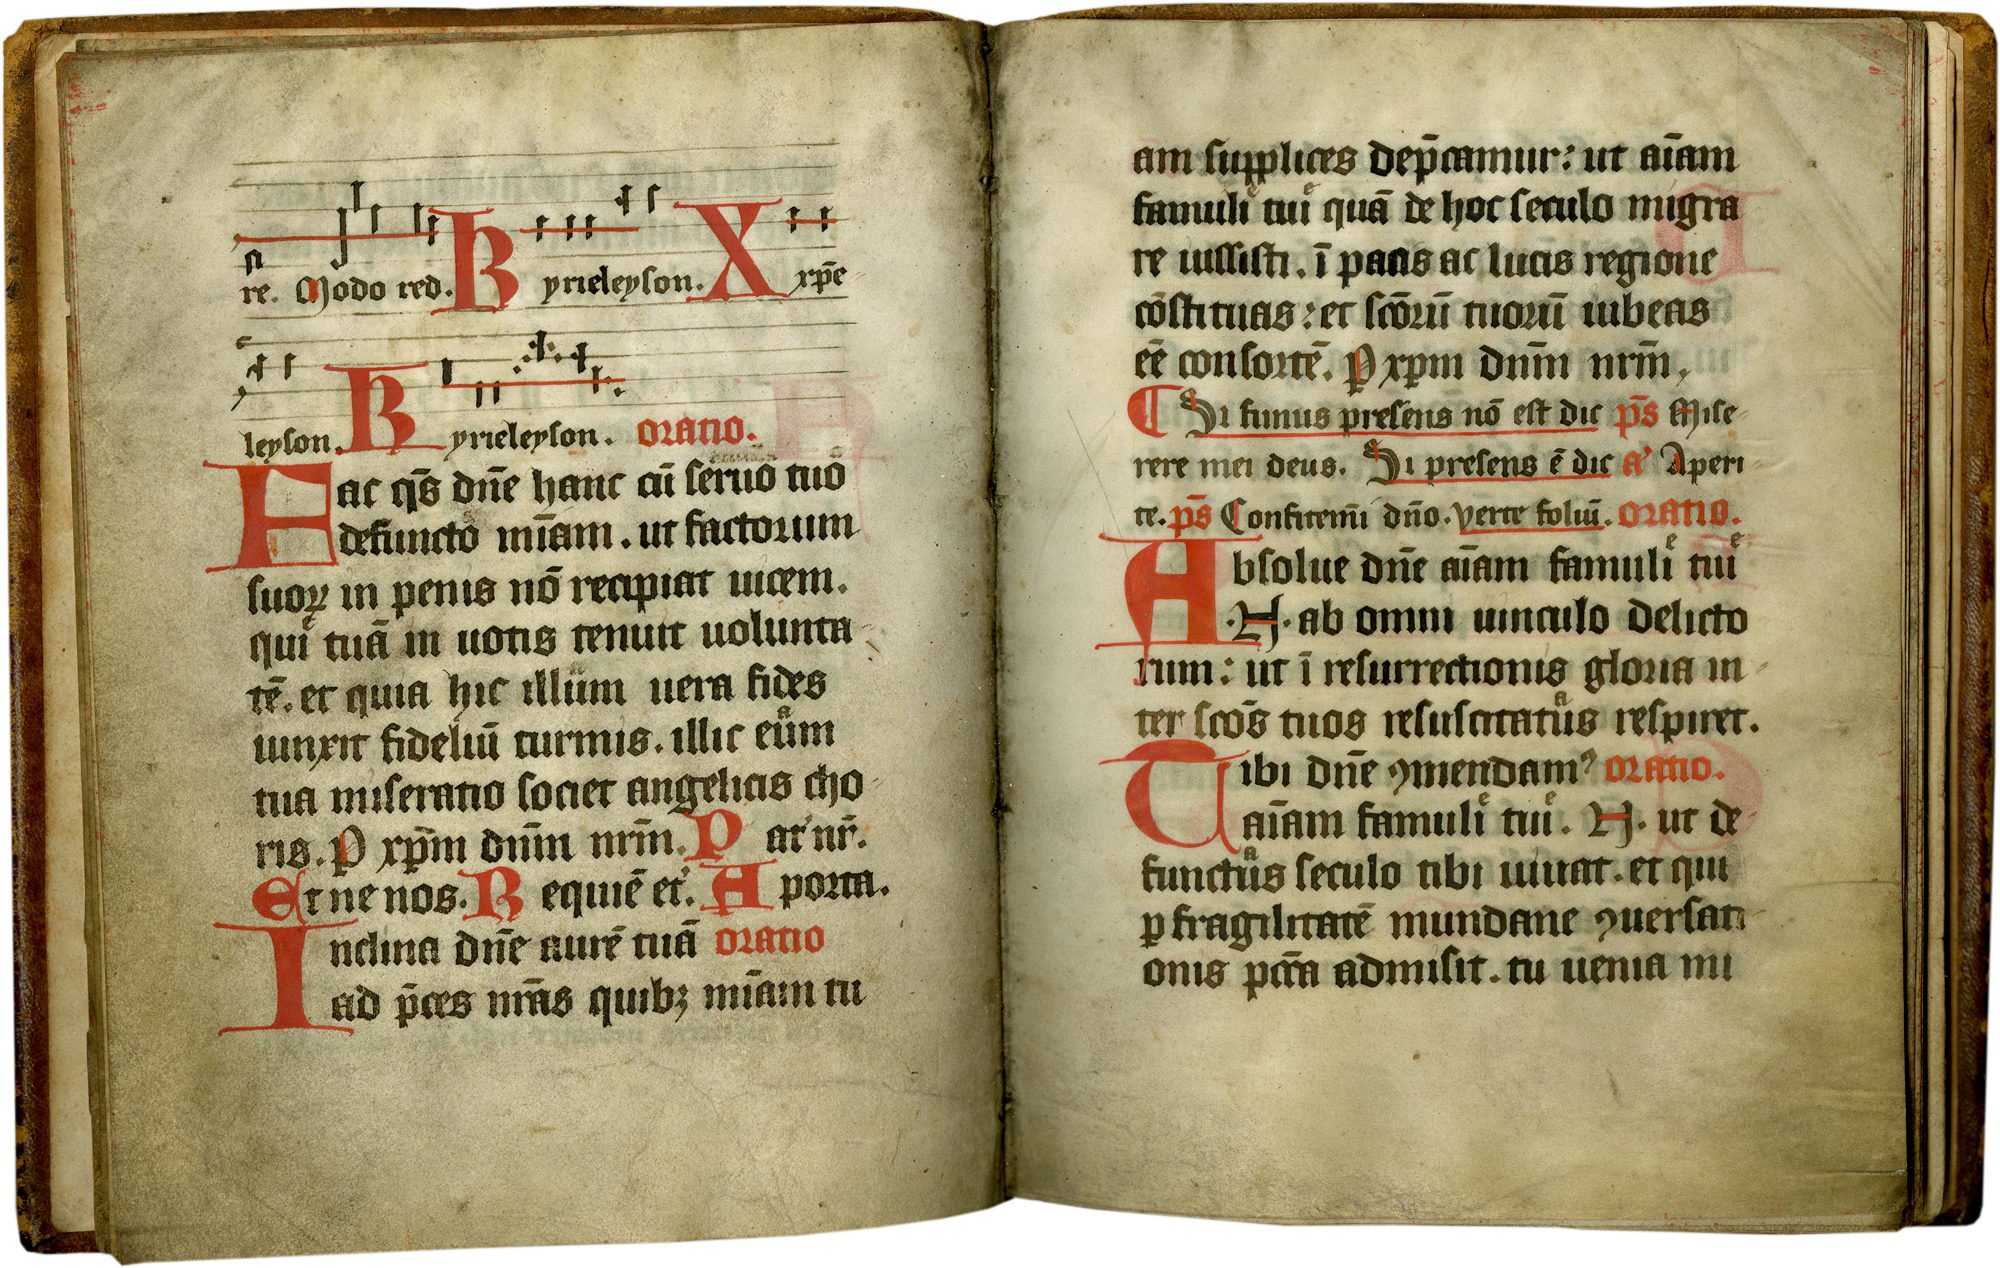 re. Modo red. Kyrieleyson. Xxp̄e
leyson. Kyrieleyson. oratio.
Fac q̄s dn̄e hanc cū seruo tuo
defuncto mīam. ut factorum
suoꝝ in penis nō recipiat uicem.
qui tuā in uotis tenuit uolunta
tē. et quia hic illum uera fides
iunxit fideliū turmis. illic eum
tua miseratio societ angelicis cho
ris. P xp̄m dn̄m nr̄m. Pat' nr̄.
Et ne nos. Requiē et'. A porta.
Inclina dn̄e aurē tuā oratio
ad p̄ces nr̄as quibꝫ mīam tu
am supplices dep̄camur: ut aīam
famuli tui quā de hoc seculo migra
re iussisti. ī pacis ac lucis regione
cōstituas: et scōrū tuorū iubeas
eē consortē. P xp̄m dn̄m nr̄m.
Si funus presens nō est dic p̄s Mise
rere mei deus. Si presens ē dic a' Aperi
te. p̄s Confitemī dn̄o. verte foliū. oratio.
Absolue dn̄e aīam famuliͤ tuiͤ
.N. ab omni uinculo delicto
rum: ut ī resurrectionis gloria in
ter scōs tuos resuscitatuͣs respiret.
Tibi dn̄e ꝯmendam⁹ oratio.
aīam famuliͤ tuiͤ. N. ut de
functuͣs seculo tibi uiuat. et qui
ꝑ fragilitatē mundane ꝯuersati
onis pcc̄a admisit. tu uenia mi